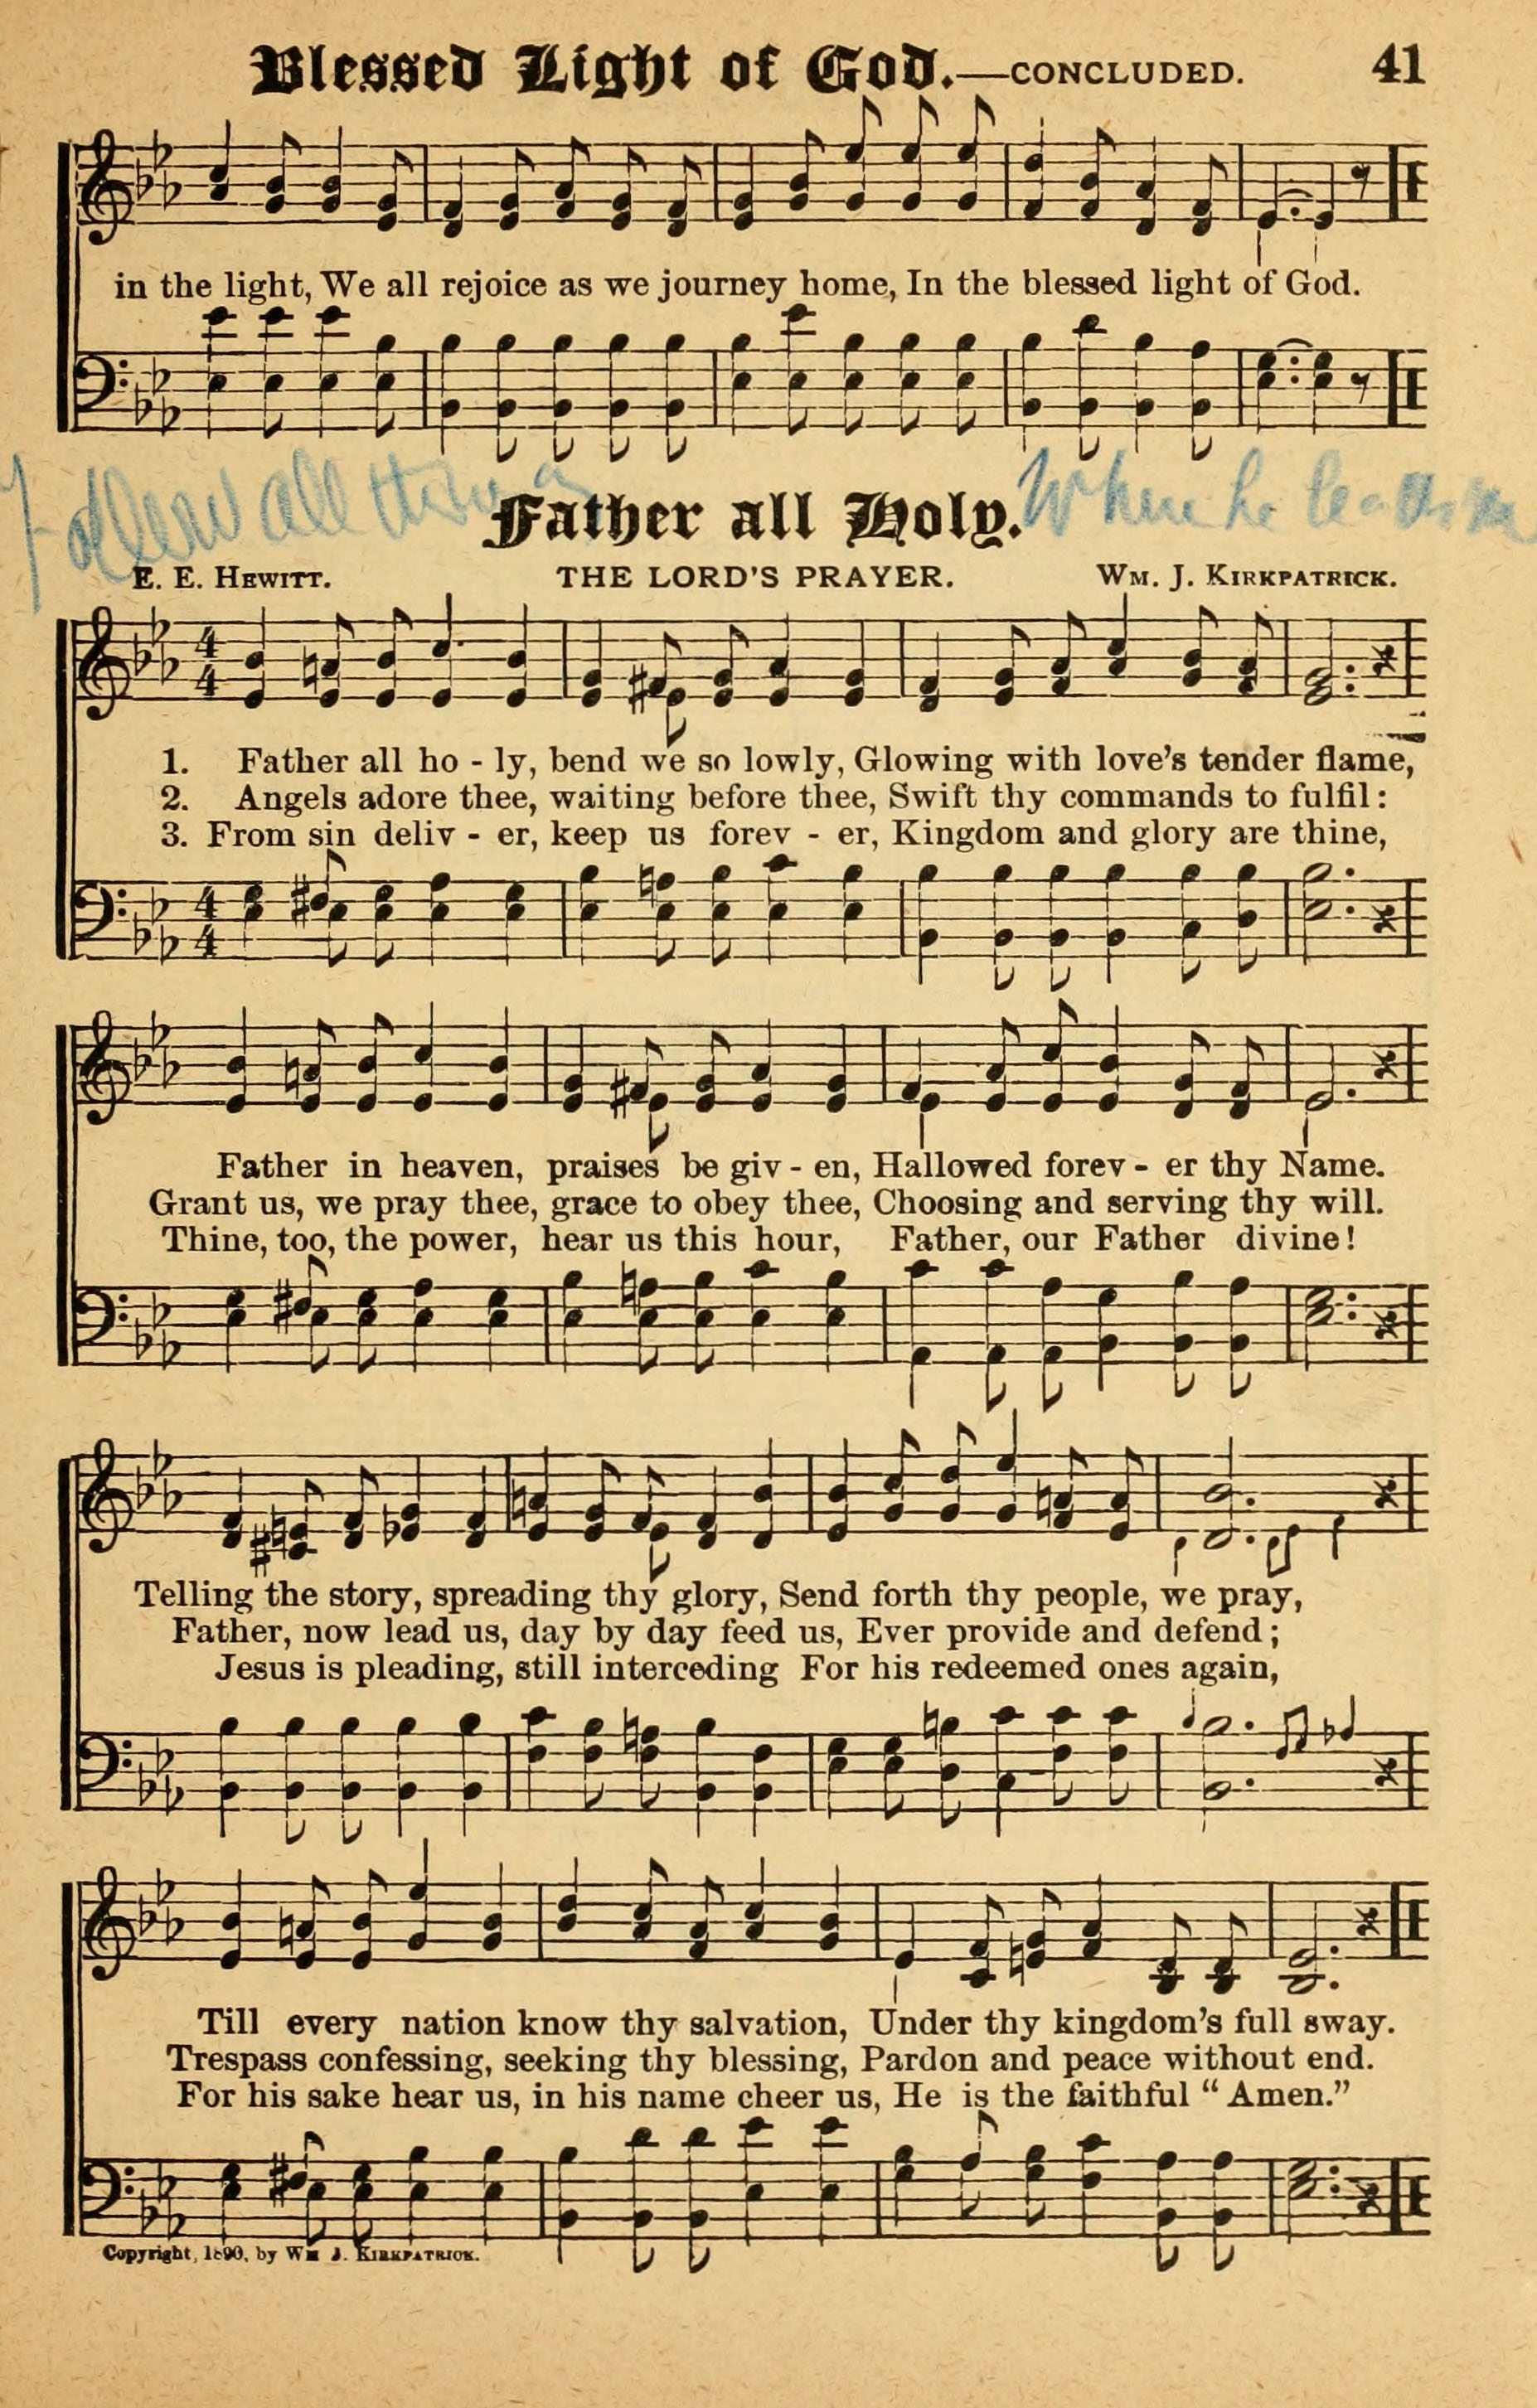 Blessed Light of God.—CONCLUDED. 41
in the light, We all rejoice as we journey home, In the blessed light of God.
Follow all the
Where he leads me
Father all Holy.
E. E. Hewitt. THE LORD'S PRAYER. Wm. J. Kirkpatrick.
4 4
1. Father all ho - ly, bend we so lowly, Glowing with love's tender flame,
2. Angels adore thee, waiting before thee, Swift thy commands to fulfil:
3. From sin deliv - er, keep us forev - er, Kingdom and glory are thine,
4 4
Father in heaven, praises be giv - en, Hallowed forev - er thy Name.
Grant us, we pray thee, grace to obey thee, Choosing and serving thy will.
Thine, too, the power, hear us this hour, Father, our Father divine!
Telling the story, spreading thy glory, Send forth thy people, we pray,
Father, now lead us, day by day feed us, Ever provide and defend;
Jesus is pleading, still interceding For his redeemed ones again,
Till every nation know thy salvation, Under thy kingdom's full sway.
Trespass confessing, seeking thy blessing, Pardon and peace without end.
For his sake hear us, in his name cheer us, He is the faithful "Amen."
Copyright, 1890, by Wm J. Kirkpatrick.